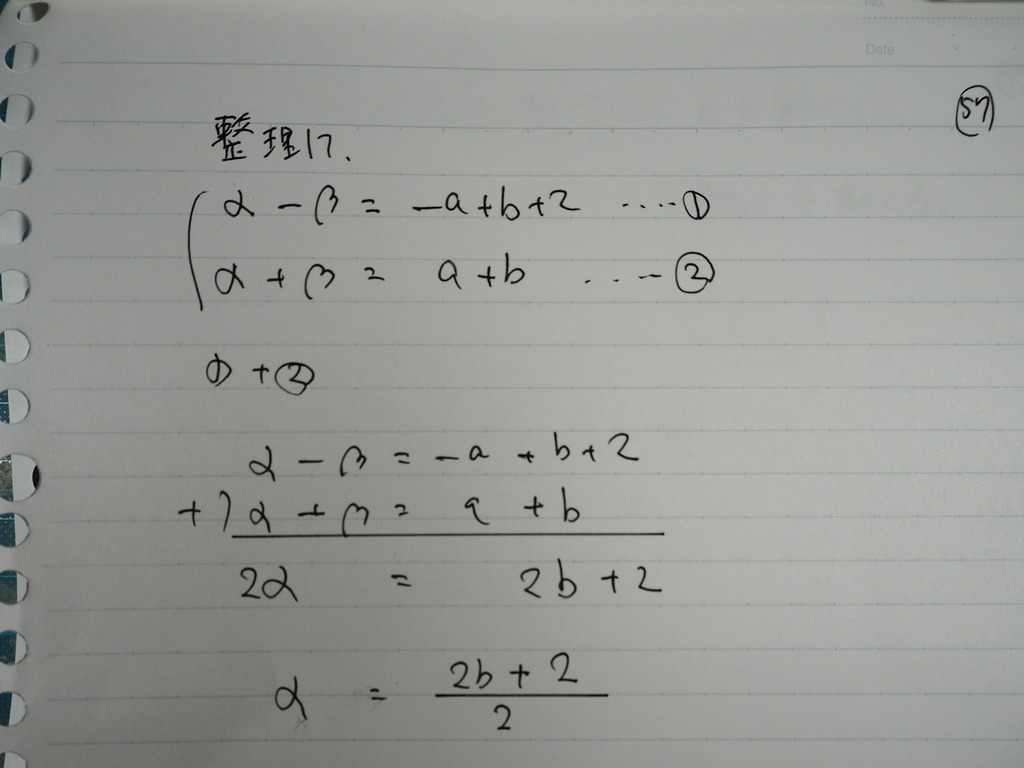 No.
Date
57
整理して.
α - β = -a+b+2 ····①
α + β = a+b ····②
①+②
α - β = -a + b + 2
+) α + β = a + b
2α = 2b + 2
α = \frac{2b + 2}{2}